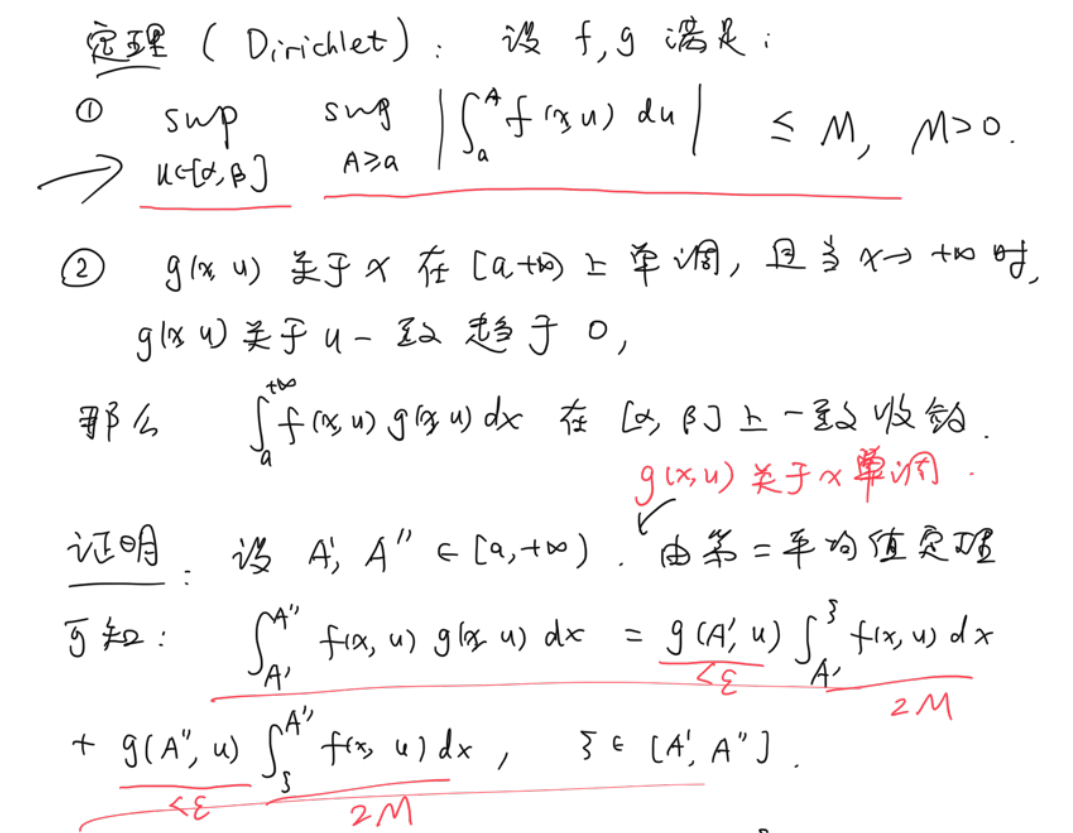 定理 ( Dirichlet ) : 设 f, g 满足:
① sup_{u∈[α, β]} sup_{A≥a} | ∫_a^A f(x, u) du | ≤ M, M>0.
② g(x, u) 关于 x 在 [a, +∞) 上 单调, 且当 x→ +∞ 时,
g(x, u) 关于 u 一致 趋于 0,
那么 ∫_a^{+∞} f(x, u) g(x, u) dx 在 [α, β] 上 一致收敛.
g(x, u) 关于 x 单调.
证明: 设 A', A'' ∈ [a, +∞). 由第二平均值定理
可知: ∫_{A'}^{A''} f(x, u) g(x, u) dx = g(A', u) ∫_{A'}^ξ f(x, u) dx
<ε 2M
+ g(A'', u) ∫_ξ^{A''} f(x, u) dx, ξ ∈ [A', A''].
<ε 2M